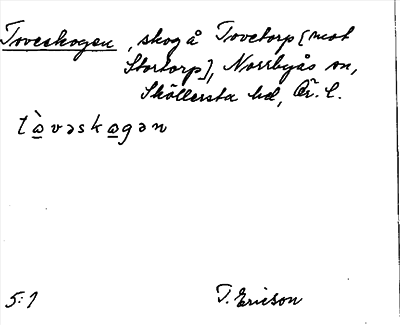 Toveskogen, skog å Tovetorp [mot
Stortorp], Norrbyås sn,
Sköllersta hd, Ör. l.
tò̲vəsko̲gən
5:1 T. Ericson